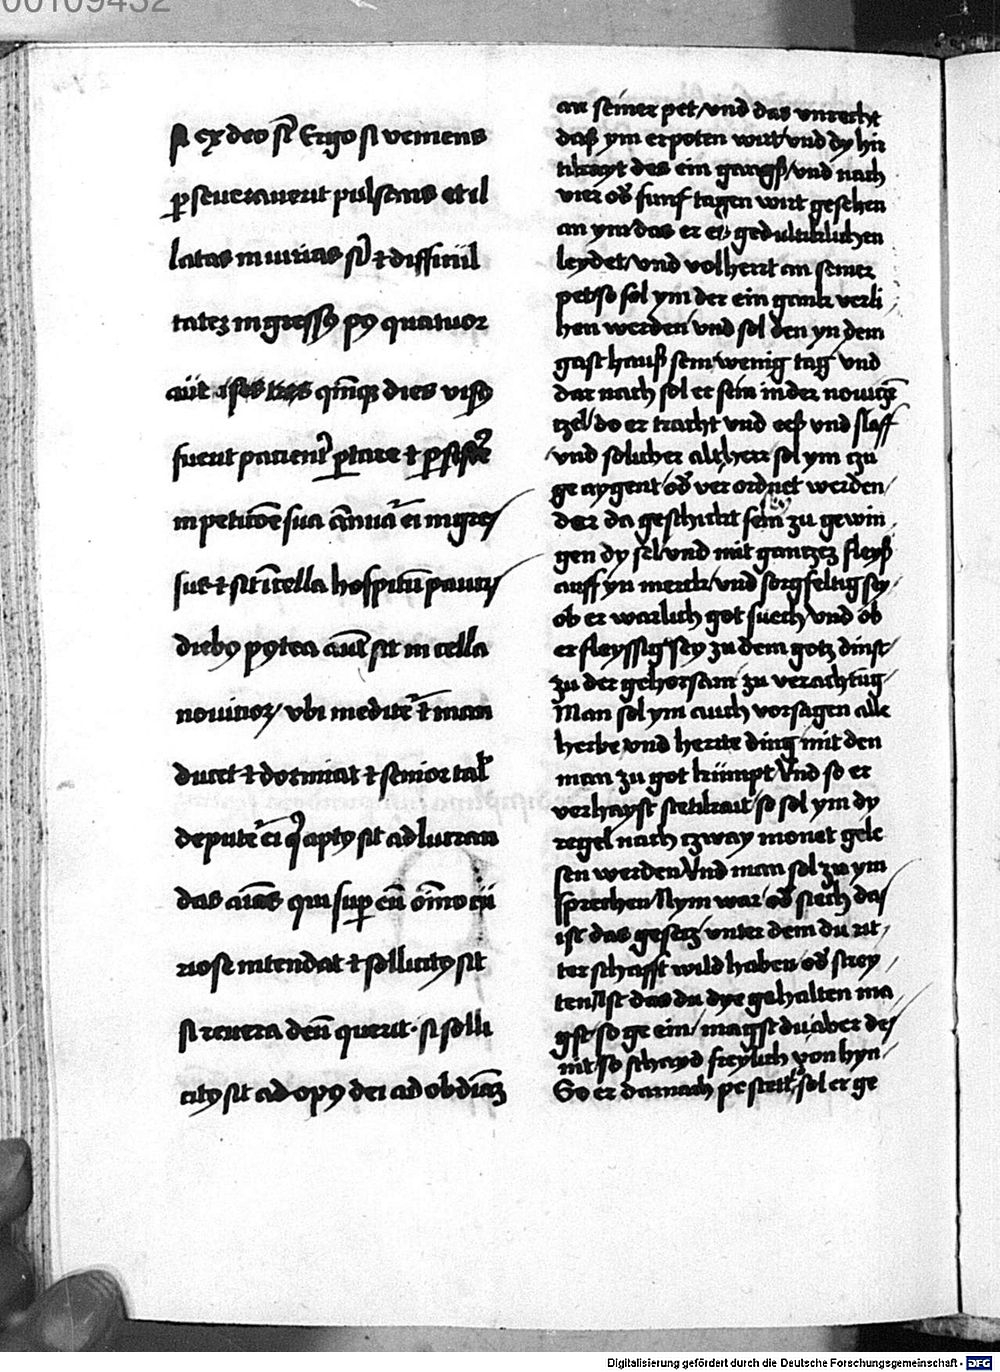 00109432
si ex deo sūt Ergo si veniens
ꝑseueraverit pulsans et il
latas iniurias sibi ⁊ difficul
tatez ingressꝰ pꝰ quatuor
aut qīnqꝫ dies visꝰ
fuerit pacienť ꝑtare ⁊ ꝑsistere
in peticōe sua ānuať ei ingres
sus ⁊ sit ī cella hospitū paucis
diebꝰ pꝰtea aūt sit in cella
novicioꝝ vbi meditet̄ ⁊ man
ducet ⁊ dormiat ⁊ senior tal̄
deputet̄ ei qͥ aptꝰ sit ad lucran
das aīas qui suꝑ eū om̄īo cu
riose intendat ⁊ sollicitꝰ sit
si revera deū querit · si solli
citꝰ sit ad opꝰ dei ad obdiāz
an seiner pet / vnd das vnrecht
das ym erpoten wirt vnd dy hir
tikayt des ein gangß / vnd nach
vier od̄ funf tagen wirt gesehen
an ym das er es gedultiklichen
leydet / vnd volherrt an seiner
pet so sol ym der ein gank verli
hen werden vnd sol den yn dem
gast hauß sein wenig tag vnd
dar nach sol er sein in der nouicz̄
czel / do er tracht vnd eeß vnd slaff
vnd solicher altherr sol ym czu
ge aygent od̄ ver ordnet werden
der da geschickt sein zu gewin
gen dy sel vnd mit gantzez fleyß
auff yn merck / vnd sorgfeltig sey
ob er warlich got suech / vnd ob
er fleyssig sey zu dem gotz dinst
zu der gehorsam zu verachtūg
Man sol ym auch vorsagen alle
herbe vnd herte ding mit den
man zu got kūmpt Vnd so er
verhayst stetikait / so sol ym dy
regel nach czway monet gele
sen werden Vnd man sol zu ym
sprechen Nym war od̄ siech das
ist das gesetz vnter dem du rit
ter schafft wild haben od̄ strey
ten / Ist das du dye gehalten ma
gst so ge ein / magst du aber des
nit so schayd freylich von hyn
So er darnach pe stett sol er ge
Digitalisierung gefördert durch die Deutsche Forschungsgemeinschaft - DFG